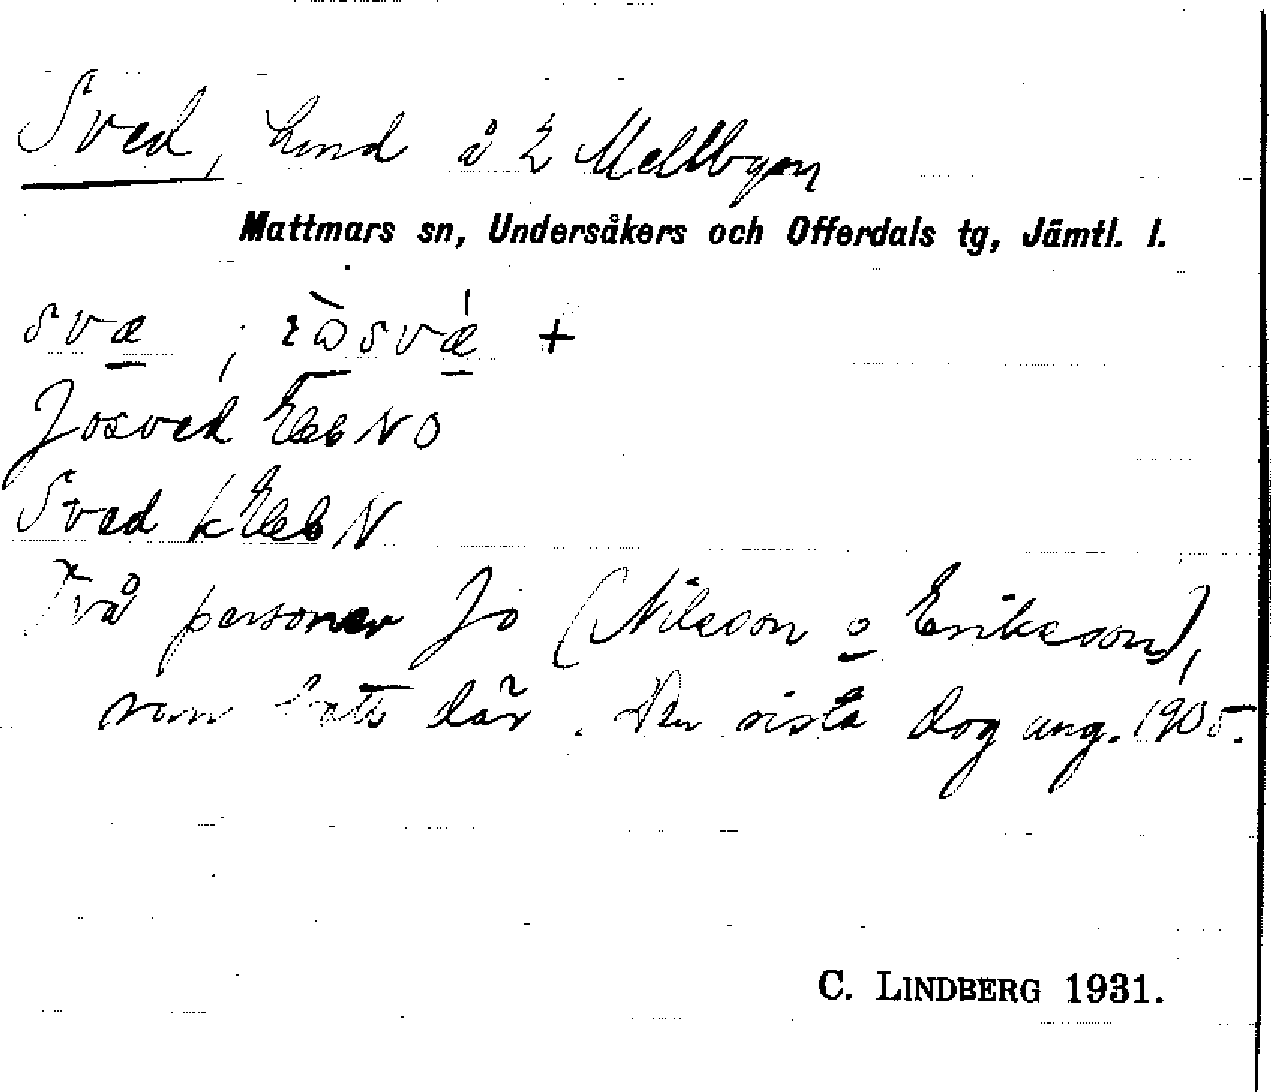 Sved, hmd å 2 Mellbyen
Mattmars sn, Undersåkers och Offerdals tg, Jämtl. l.
svæ ; svǽ +
Josved Ekbl NO
Sved k Ekbl N
Två personer Jo (Nilsson o Eriksson),
som där. Den sista dog ung. 1905.
C. LINDBERG 1931.